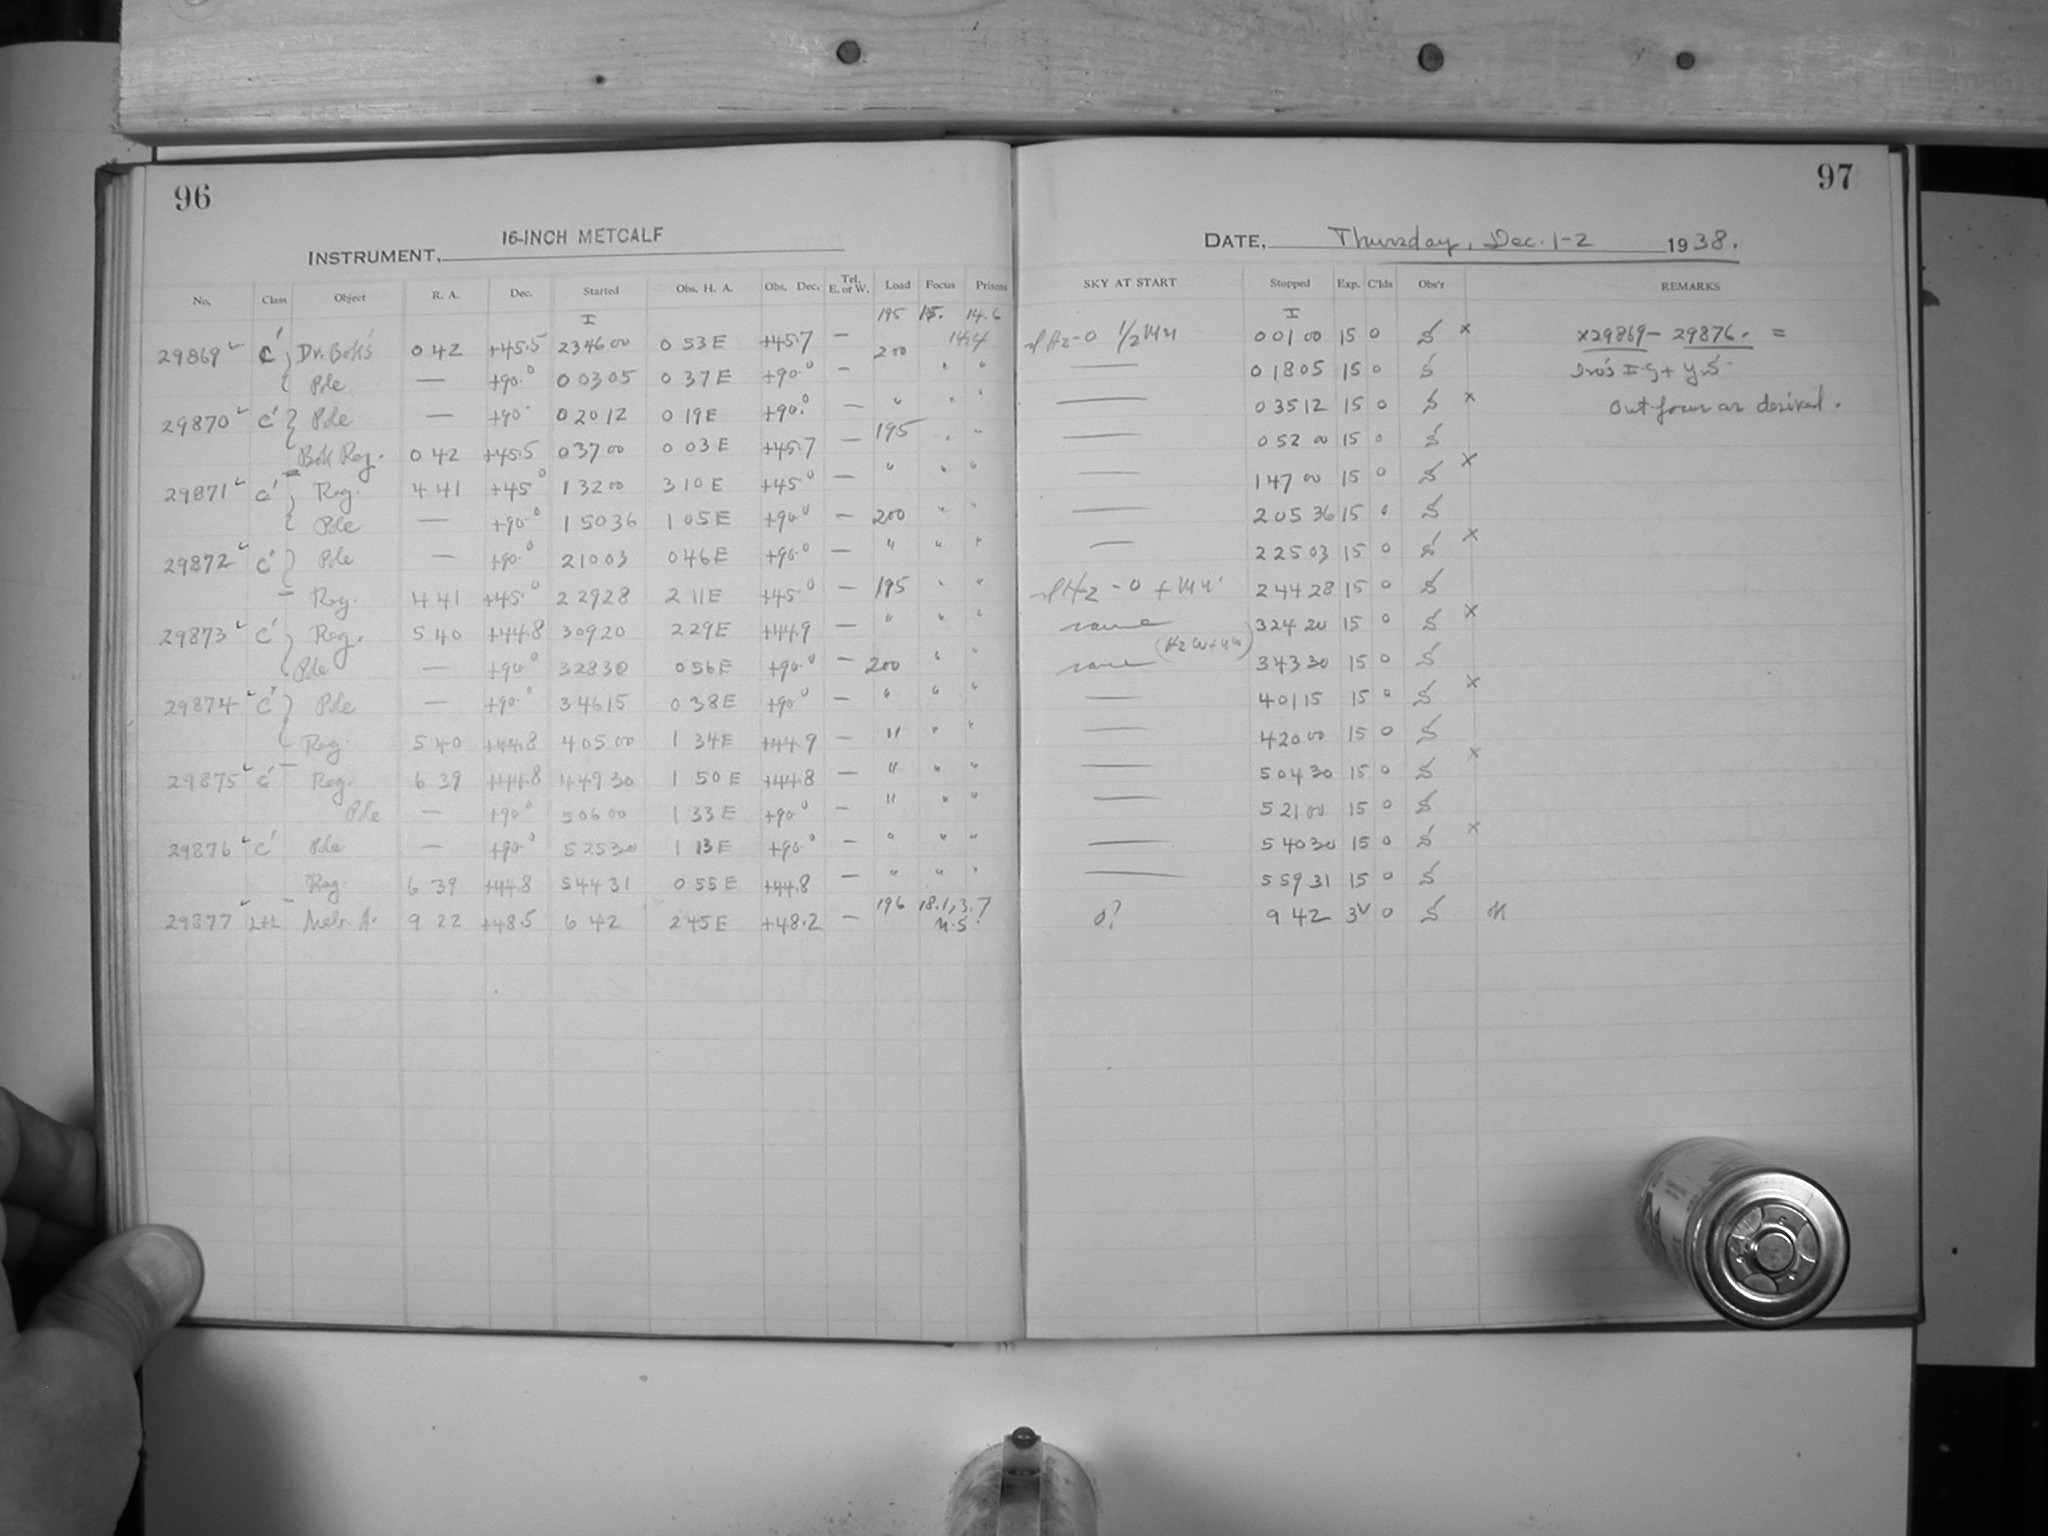 96
97
INSTRUMENT, 16-INCH METCALF
DATE, Thursday, Dec. 1-2 1938.
No. Class Object R. A. Dec. Started Obs. H. A. Obs. Dec. Tel. E. or W. Load Focus Prisms SKY AT START Stopped Exp. C'lds Obs'r REMARKS
I 195 15. 14.6 I
29869 C' Dr. Bok's 0 42 +45.5 23 46 00 0 53 E +45.7 — 200 14.4 Hz-0 1/2 Mn 0 01 00 15 0 S x x29869 - 29876. =
Pole — +90.° 0 03 05 0 37 E +90.° — " " — 0 18 05 15 0 S
29870 C' Pole — +90° 0 20 12 0 19 E +90.° — " " " — 0 35 12 15 0 S x Out focus as desired.
Bok Reg. 0 42 +45.5 0 37 00 0 03 E +45.7 — 195 " " — 0 52 00 15 0 S
29871 C' Reg. 4 41 +45° 1 32 00 3 10 E +45° — " " " — 1 47 00 15 0 S x
Pole — +90.° 1 50 36 1 05 E +90.° — 200 " " — 2 05 36 15 0 S
29872 C' Pole — +90.° 2 10 03 0 46 E +90.° — " " " — 2 25 03 15 0 S x
Reg. 4 41 +45.° 2 29 28 2 11 E +45.° — 195 " " Hz - 0 + Mn 2 44 28 15 0 S
29873 C' Reg. 5 40 +44.8 3 09 20 2 29 E +44.9 — " " " same 3 24 20 15 0 S x
Pole — +90.° 3 28 30 0 56 E +90.° — 200 " " same 3 43 30 15 0 S
29874 C' Pole — +90.° 3 46 15 0 38 E +90.° — " " " — 4 01 15 15 0 S x
Reg. 5 40 +44.8 4 05 00 1 34 E +44.9 — " " " — 4 20 00 15 0 S
29875 C' Reg. 6 39 +44.8 4 49 30 1 50 E +44.8 — " " " — 5 04 30 15 0 S x
Pole — +90.° 5 06 00 1 33 E +90.° — " " " — 5 21 00 15 0 S
29876 C' Pole — +90.° 5 25 30 1 13 E +90.° — " " " — 5 40 30 15 0 S x
Reg. 6 39 +44.8 5 44 31 0 55 E +44.8 — " " " — 5 59 31 15 0 S
29877 L+L Metr. A. 9 22 +48.5 6 42 2 45 E +48.2 — 196 18.1, 3.7 0? 9 42 3 0 S